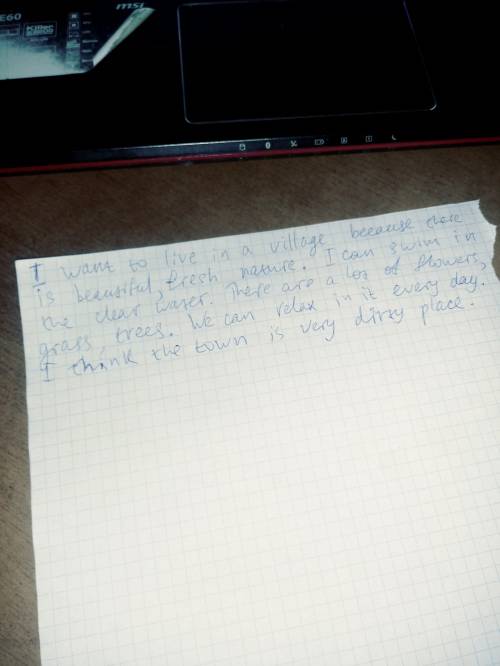 E60
msi
Killer
I want to live in a village because there
is beautiful, fresh nature. I can swim in
the clear water. There are a lot of flowers,
grass, trees. We can relax in it every day.
I think the town is very dirty place.